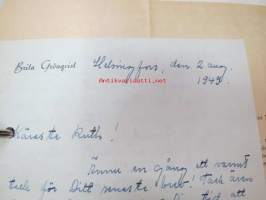 Brita Grönqvist Helsingfors, den 2 aug.
1945
Käraste Ruth!
Ännu en gång ett varmt
tack för Ditt senaste brev! Tack även
att
Antikvariaatti.net